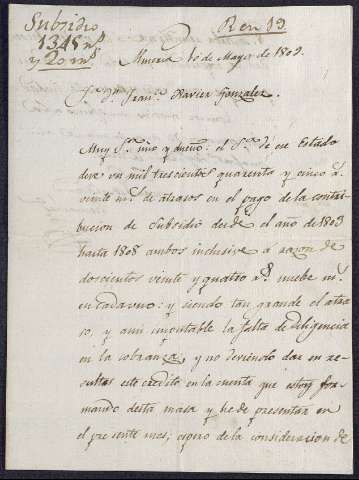 Subsidio
1345 r.s
y 20 m.s
R en 13
Murcia 10 de Mayo de 1809.
S.r D.n Fran.co Xavier Gonzalez.
Muy S.r mio y dueño: el S.r de ese Estado
deve mil trescientos quarenta y cinco r.s
veinte m.s de atrasos en el pago de la contri-
bucion de Subsidio desde el año de 1803
hasta 1808 ambos inclusive á razon de
doscientos veinte y quatro r.s nuebe m.s
en cada uno: y siendo tan grande el atra-
so, y aun imputable la falta de diligencia
en la cobranza, y no deviendo dar en re-
sultas este credito en la cuenta que estoy for-
mando desta masa y he de presentar en
el presente mes; espero de la consideracion de